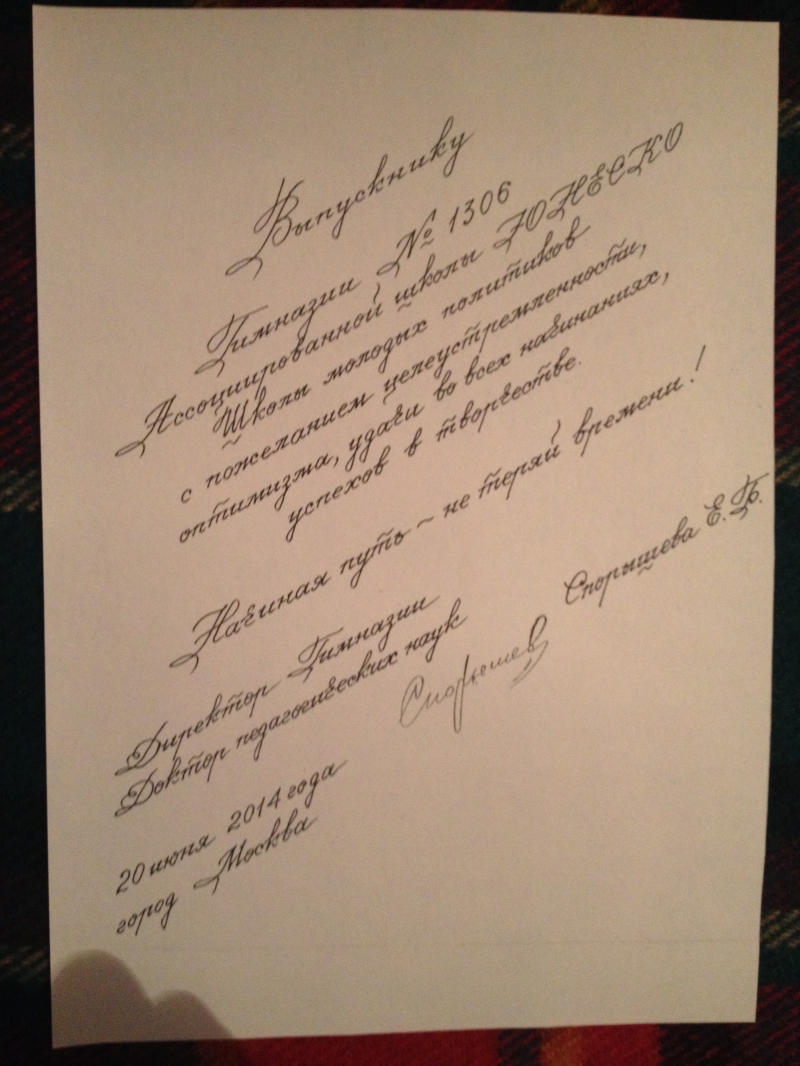 Выпускнику
Гимназии № 1306
Ассоциированной школы ЮНЕСКО
Школы молодых политиков
с пожеланием целеустремленности,
оптимизма, удачи во всех начинаниях,
успехов в творчестве.
Начиная путь – не теряй времени!
Директор Гимназии
Доктор педагогических наук
Спорышева Е.Б.
20 июня 2014 года
город Москва